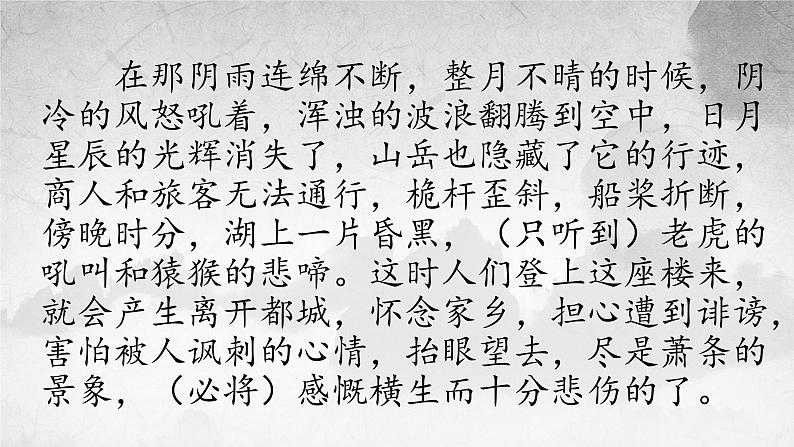 在那阴雨连绵不断，整月不晴的时候，阴
冷的风怒吼着，浑浊的波浪翻腾到空中，日月
星辰的光辉消失了，山岳也隐藏了它的行迹，
商人和旅客无法通行，桅杆歪斜，船桨折断，
傍晚时分，湖上一片昏黑，（只听到）老虎的
吼叫和猿猴的悲啼。这时人们登上这座楼来，
就会产生离开都城，怀念家乡，担心遭到诽谤，
害怕被人讽刺的心情，抬眼望去，尽是萧条的
景象，（必将）感慨横生而十分悲伤的了。